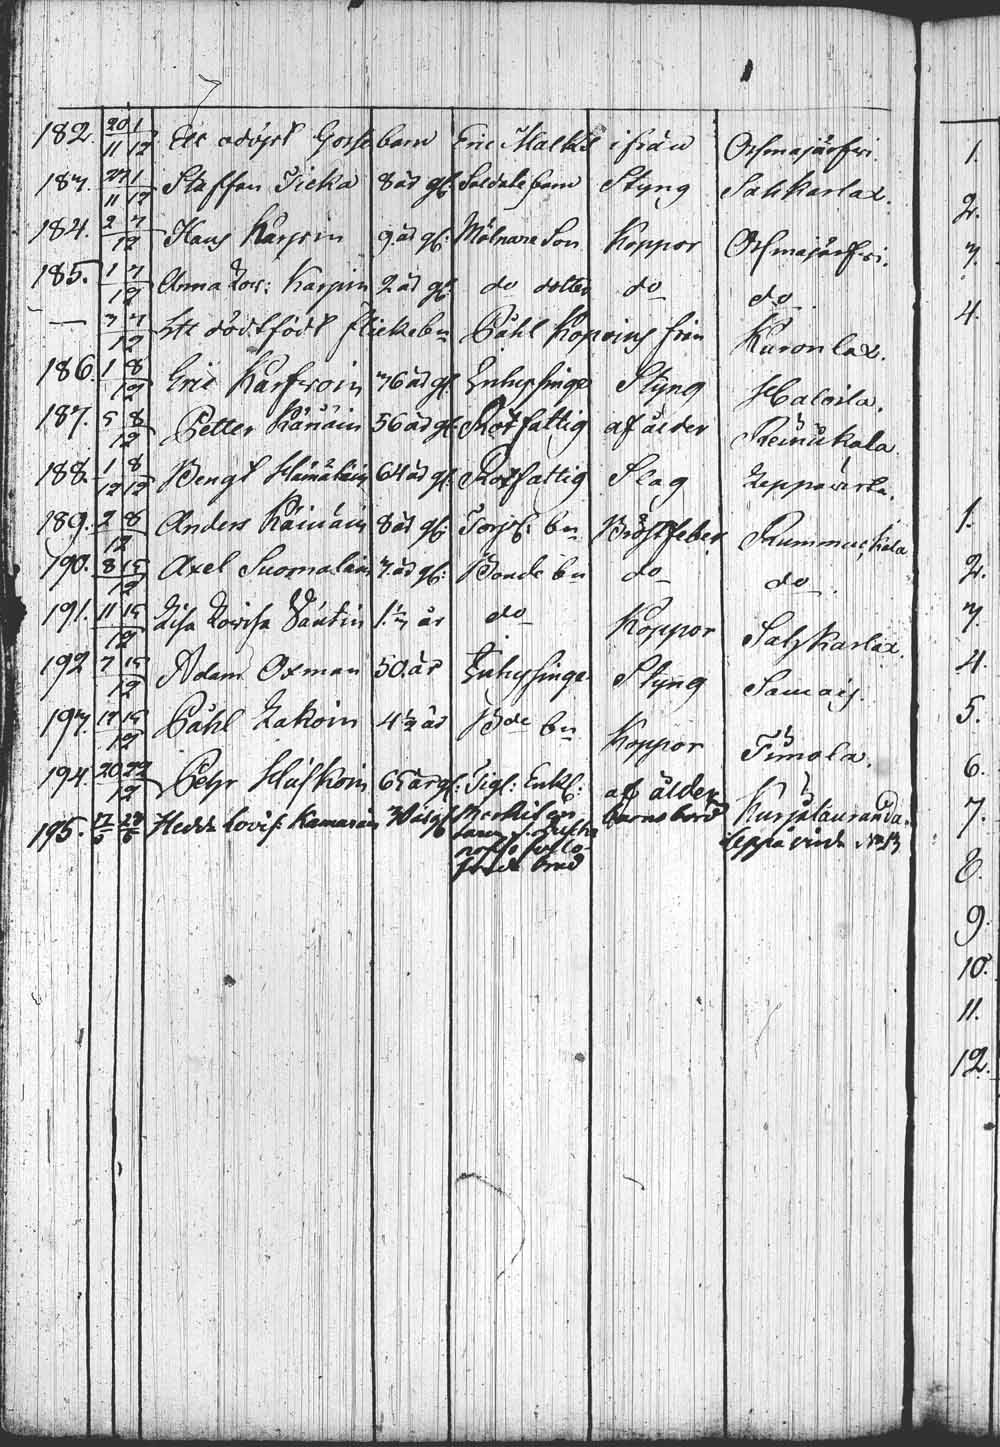 182. 20/11 1/12 Ett odöpt Gosse barn Eric Malkki ifrån Osmajärfvi.
183. 27/11 1/12 Staffan Ticka 8 år gl. Soldate barn Styng Sakkarlax.
184. 2 7/12 Hans Karpin 9 år gl. Mölnare Son Koppor Osmajärfvi.
185. 1 7/12 Anna Lov: Karpin 2 år gl. do dotter do do
— 3 7/12 Ett dödfödt flickebn Påhl Kopoins från Kuronlax.
186. 1 8/12 Eric Karfvoin 76 år gl. Enhysinge Styng Haloila.
187. 5 8/12 Petter Känäin 56 år gl. Rotfattig af ålder Reinikala
188. 1/12 8/12 Bengt Hämäläin 64 år gl. Rotfattig Slag Leppävirta.
189. 2 8/12 Anders Räinäin 8 år gl. Torp: bn Bröstfeber Rummukala
190. 8 15/12 Axel Suomalain 7 år gl: Bonde bn do do
191. 11 15/12 Lisa Lovisa Väntin 1 1/3 år do Koppor Saltzkarlax.
192 7 15/12 Adam Oxman 50 år Enhysinge Styng Samaij.
193. 13 15/12 Påhl Zakoin 4 1/2 år Bde bn Koppor Timola.
194. 20 22/12 Petr Huskoin 65 år gl: Tigl: Enkl: af ålder Kurjalauranda.
195. Hedda Lovis: Kamarain barnsbörd Leppävirta No 13
1.
2.
3.
4.
1.
2.
3.
4.
5.
6.
7.
8.
9.
10.
11.
12.